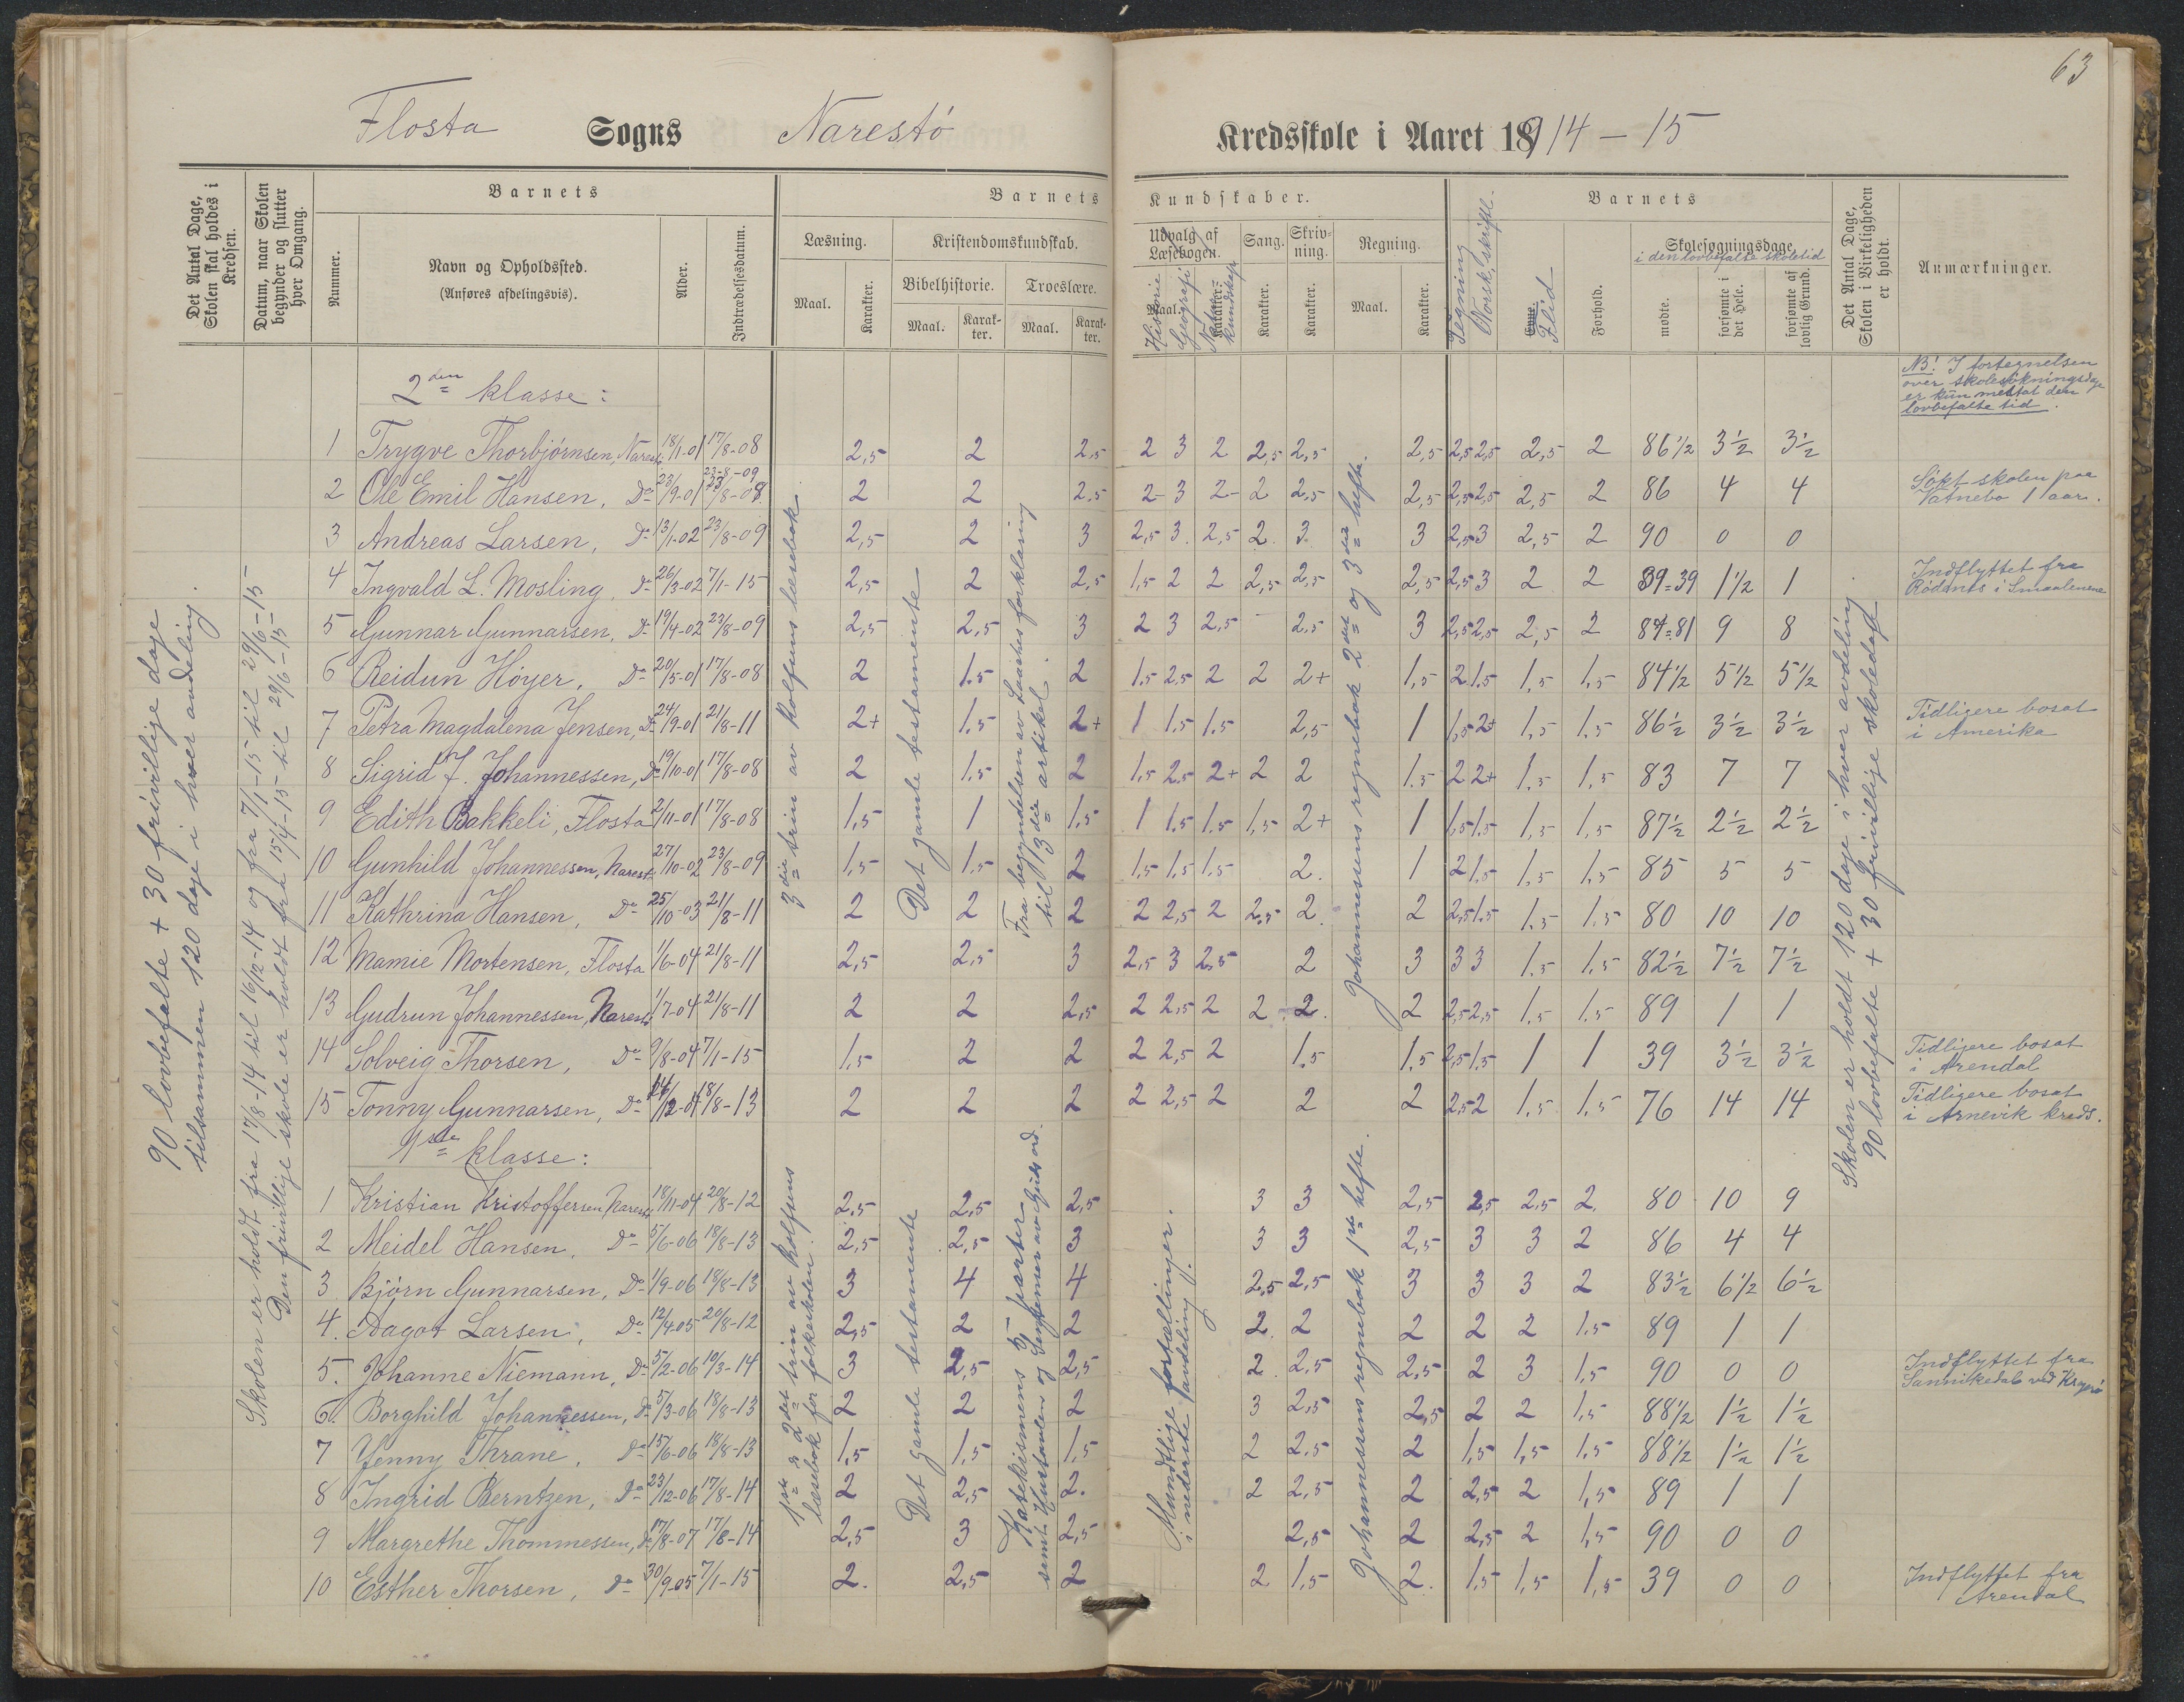 63
Flosta Sogns Narestö Kredsskole i Aaret 1914 – 15
Det Antal Dage, Skolen skal holdes i Kredsen.
Datum, naar Skolen begynder og slutter hver Omgang.
Barnets
Nummer.
Navn og Opholdssted.
(Anføres afdelingsvis).
Alder.
Indtrædelsesdatum.
Barnets Kundskaber.
Læsning.
Maal.
Karakter.
Kristendomskundskab.
Bibelhistorie.
Maal.
Karakter.
Troeslære.
Maal.
Karakter.
Udvalg af Læsebogen.
Maal.
Karakter.
Historie
Geografi
Naturkundskap
Sang.
Karakter.
Skrivning.
Karakter.
Regning.
Maal.
Karakter.
Tegning
Norsk skriftl.
Barnets
Evne.
Flid
Forhold.
Skolesøgningsdage
i den lovbefalte skoletid
mødte.
forsømte i det Hele.
forsømte af lovlig Grund.
Det Antal Dage, Skolen i Virkeligheden er holdt.
Anmærkninger.
90 lovbefalte + 30 frivillige dage
tilsammen 120 dage i hver avdeling.
Skolen er holdt fra 17/8-14 til 16/12-14 og fra 7/1-15 til 29/6-15
Den frivillige skole er holdt fra 15/4-15 til 29/6-15
NB! I fortegnelsen
over skolesøkningsdage
er kun medtat den
lovbefalte tid.
2den klasse:
1 Trygve Thorbjørnsen, Narestö 18/1-01 17/8-08 2,5 2 2,5 2 3 2 2,5 2,5 2,5 2,5 2,5 2,5 2 86 1/2 3 1/2 3 1/2
2 Ole Emil Hansen, Do 23/9-01 23-8-09 2 2 2,5 2- 3 2- 2 2,5 2,5 2,5 2,5 2,5 2 86 4 4 Søkt skolen paa Vatnebo 1 aar.
3 Andreas Larsen, Do 13/1-02 23/8-09 2,5 2 3 2,5 3 2,5 2 3 3 2,5 3 2,5 2 90 0 0
4 Ingvald L. Mosling Do 26/3-02 7/1-15 2,5 2 2,5 1,5 2 2 2,5 2,5 2,5 2,5 3 2 2 39=39 1 1/2 1 Indflyttet fra Rødenes i Smaalenene
5 Gunnar Gunnarsen, Do 19/4-02 23/8-09 2,5 2,5 3 2 3 2,5 - 2,5 3 2,5 2,5 2,5 2 81=81 9 8
6 Reidun Höyer, Do 20/5-01 17/8-08 2 1.5 2 1.5 2.5 2 2 2+ 1,5 2 1.5 1,5 1,5 84 1/2 5 1/2 5 1/2
7 Petra Magdalena Jensen, Do 24/9-01 21/8-11 2+ 1.5 2+ 1 1.5 1.5 2,5 1 1,5 2+ 1,5 1.5 86 1/2 3 1/2 3 1/2 Tidligere bosat i Amerika
8 Sigrid J. Johannessen, Do 19/10-01 17/8-08 2 1.5 2 1.5 2.5 2+ 2 2 1.5 2 2+ 1,5 1,5 83 7 7
9 Edith Bakkeli, Flosta 2/11-01 17/8-08 1,5 1 1,5 1 1.5 1.5 1,5 2+ 1 1,5 1.5 1,5 1,5 87 1/2 2 1/2 2 1/2
10 Gunhild Johannessen, Narestö 27/10-02 23/8-09 1,5 1.5 2 1.5 1.5 1.5 2. 1 2 1,5 1,5 1,5 85 5 5
11 Kathrina Hansen, Do 25/10-03 21/8-11 2 2 2 2 2,5 2 2,5 2. 2 2,5 1.5 1,5 1.5 80 10 10
12 Mamie Mortensen, Flosta 1/6-04 21/8-11 2,5 2,5 3 2,5 3 2,5 2 3 3 3 1,5 1.5 82 1/2 7 1/2 7 1/2
13 Gudrun Johannessen, Narestö 1/7-04 21/8-11 2 2 2,5 2 2,5 2 2 2. 2 2,5 2,5 1,5 1.5 89 1 1
14 Solveig Thorsen, Do 9/8-04 7/1-15 1,5 2 2 2 2,5 2 1.5 1.5 2,5 1.5 1 1 39 3 1/2 3 1/2 Tidligere bosat i Arendal
15 Tonny Gunnarsen, Do 24/12-04 18/8-13 2 2 2 2 2,5 2 2 2 2,5 2 1,5 1.5 76 14 14 Tidligere bosat i Arnevik kreds.
3die trin av Rolfsens læsebok.
Det gamle testamente
Fra begyndelsen av Saahes forklaring
til 3die artikel.
Johannesens regnebok 2det og 3die hefte.
Skolen er holdt 120 dage i hver avdeling.
90 lovbefalte + 30 frivillige skoledage
1ste klasse:
1 Kristian Kristoffersen Narestö 18/11-04 20/8-12 2,5 2,5 2,5 3 3 2,5 2,5 2,5 2 80 10 9
2 Meidel Hansen, Do 5/6-06 18/8-13 2,5 2,5 3 3 3 2,5 3 3 2 86 4 4
3 Björn Gunnarsen, Do 1/9-06 18/8-13 3 4 4 2,5 2,5 3 3 3 2 83 1/2 6 1/2 6 1/2
4. Dagot Larsen, Do 12/4-05 20/8-12 2,5 2 2 2. 2 2 2 2 1.5 89 1 1
5. Johanne Niemann, Do 5/2-06 10/3-14 3 2,5 2,5 2 2,5 2,5 2 3 1,5 90 0 0 Indflyttet fra Sannikedal ved Kragerö
6. Borghild Johannessen, Do 5/3-06 18/8-13 2 2 2 3 2,5 2,5 2 2 1,5 88 1/2 1 1/2 1 1/2
7 Jenny Thrane, Do 15/6-06 18/8-13 1,5 1,5 1,5 2 2,5 2 1,5 1,5 1.5 88 1/2 1 1/2 1 1/2
8 Ingrid Berntzen, Do 23/12-06 17/8-14 2 2,5 2. 2 2,5 2 2,5 2 1,5 89 1 1
9 Margrethe Thommessen, Do 17/8-07 17/8-14 2,5 3 2,5 2,5 2 2,5 2 1,5 90 0 0
10 Esther Thorsen, Do 30/9-05 7/1-15 2. 2,5 2 2 1,5 2. 1,5 1,5 1,5 39 0 0 Indflyttet fra Arendal
1ste og 2det trin av Rolfsens
læsebok for folkeskolen.
Det gamle testamente
Katekismens 5 parter
samt Hustavlen og
Mundtlige fortællinger.
i nederste avdeling.
Johannessens regnebok 1ste hefte.